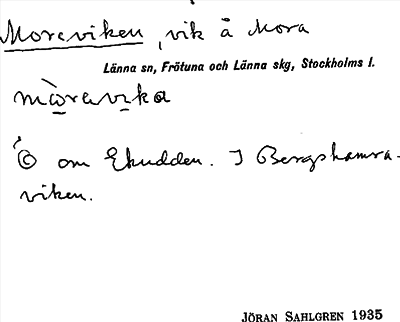 Moraviken, vik å Mora
Länna sn, Frötuna och Länna skg, Stockholms l.
mòravika
Ö om Ekudden. I Bergshamra-
viken.
JÖRAN SAHLGREN 1935